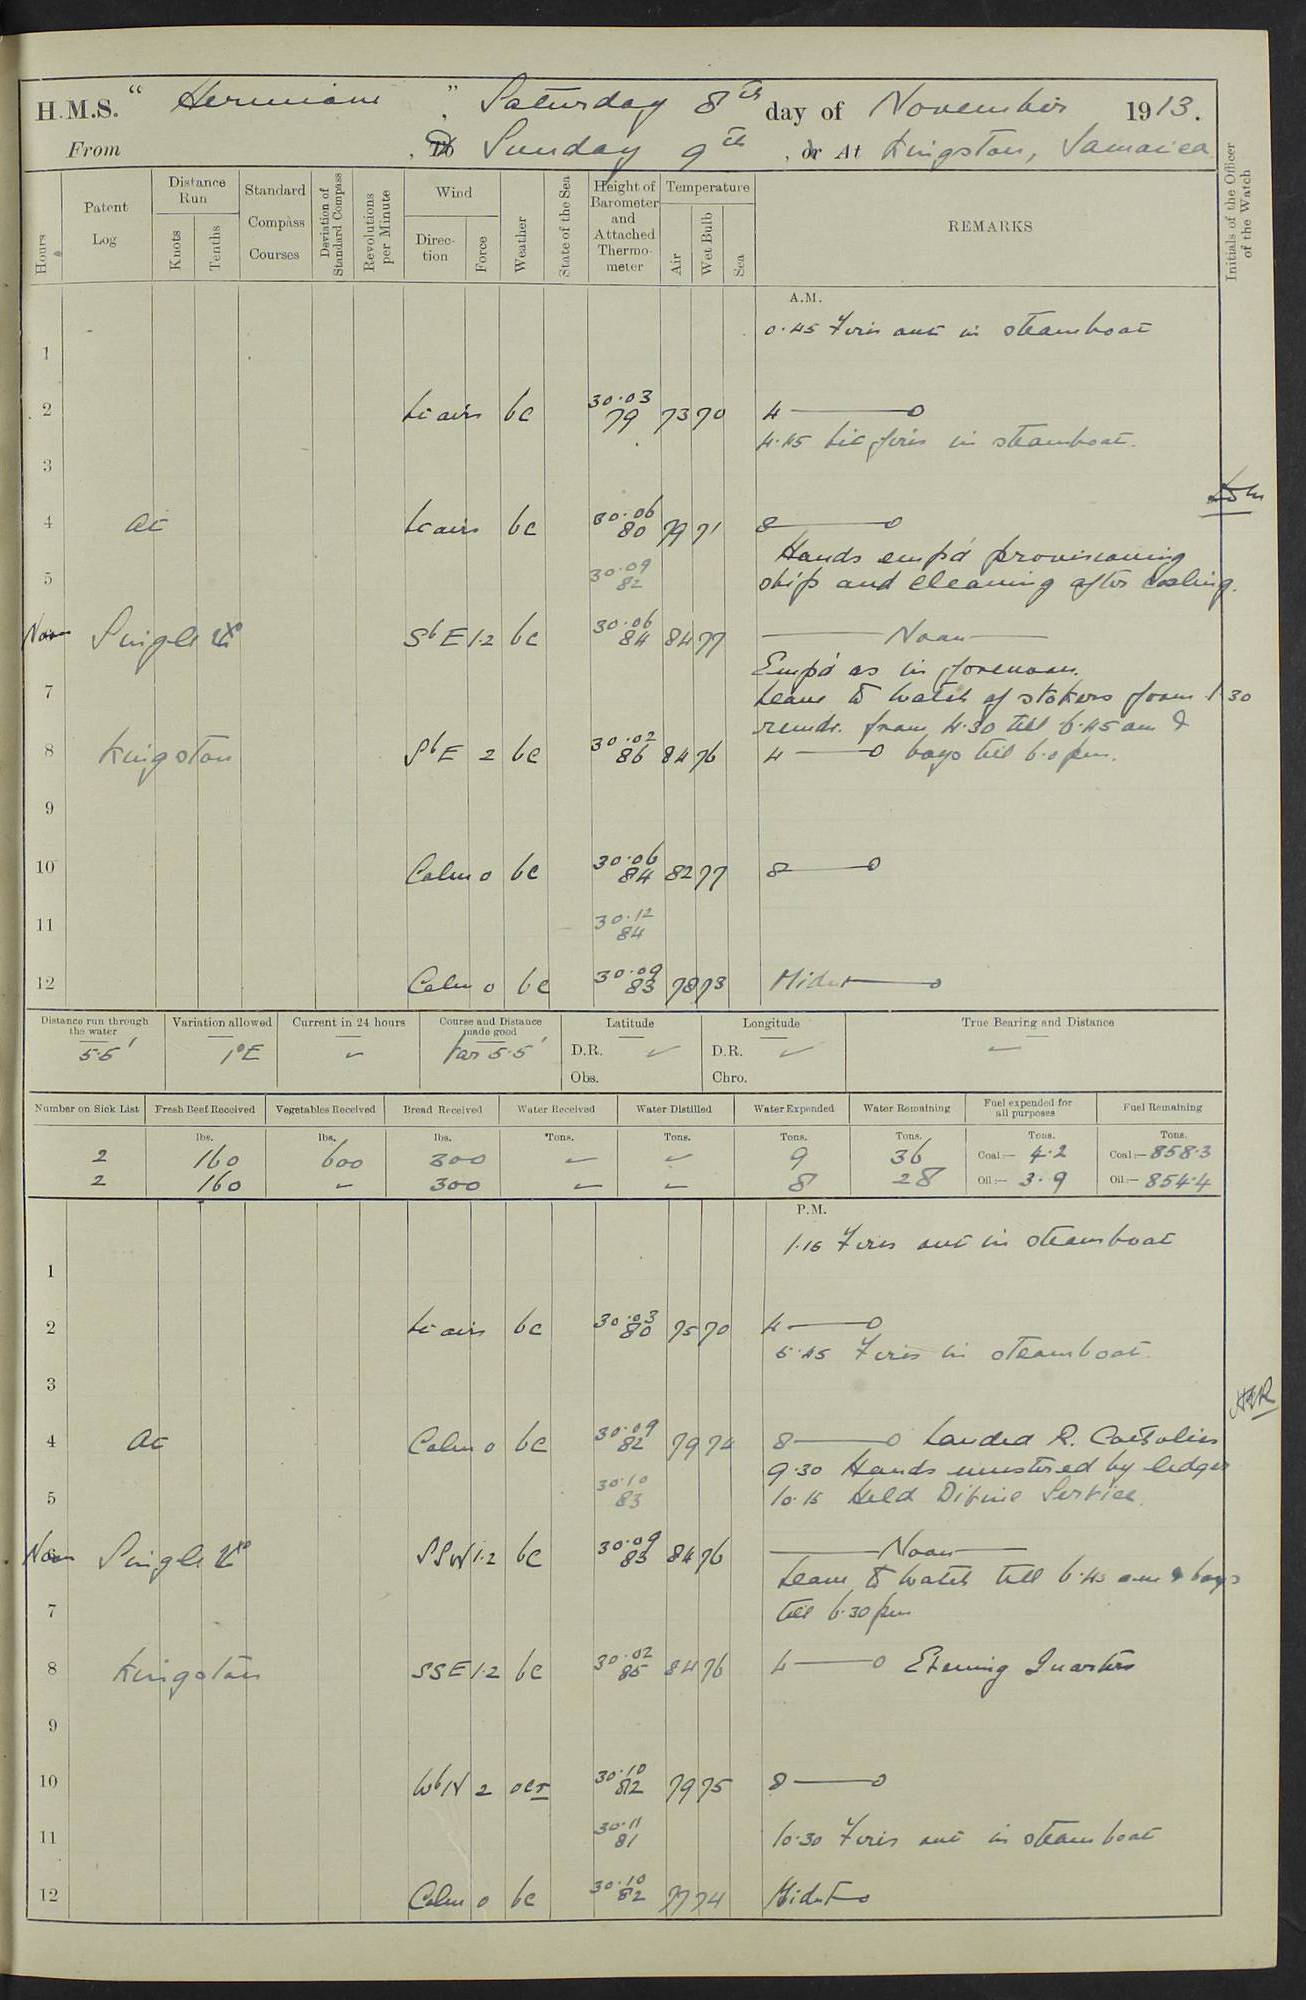 H.M.S. " Hermione ", Saturday 8th day of November 1913.
From , To Sunday 9th , or At Kingston, Jamaica
Hours
Patent Log
Distance Run
Knots
Tenths
Standard Compass Courses
Deviation of Standard Compass
Revolutions per Minute
Wind
Direction
Force
Weather
State of the Sea
Height of Barometer and Attached Thermometer
Temperature
Air
Wet Bulb
Sea
REMARKS
Initials of the Officer of the Watch
A.M.
0.45 Fires out in steamboat
1
2 Lt airs bc 30.03 79 73 70 4
4.45 Lit fires in steamboat.
3
4 At Lt airs bc 30.06 80 79 71 8
Hands emp'd provisioning
5 30.09 82 ship and cleaning after coaling.
Noon Single SbE 1.2 bc 30.06 84 84 77 Noon
Emp'd as in forenoon.
7 Leave to watch of stokers from 1.30
remdr. from 4.30 till 6.45 am &
8 Kingston SbE 2 bc 30.02 86 84 76 4 boys till 6.0 pm.
9
10 Calm 0 bc 30.06 84 82 77 8
11 30.12 84
12 Calm 0 bc 30.09 83 78 73 Midnt
Distance run through the water
Variation allowed
Current in 24 hours
Course and Distance made good
Latitude
Longitude
True Bearing and Distance
5.5' 1°E Var 5.5' D.R. D.R.
Obs. Chro.
Number on Sick List
Fresh Beef Received
Vegetables Received
Bread Received
Water Received
Water Distilled
Water Expended
Water Remaining
Fuel expended for all purposes
Fuel Remaining
lbs. lbs. lbs. Tons. Tons. Tons. Tons. Tons. Tons.
2 160 600 300 9 36 Coal:— 4.2 Coal:— 858.3
2 160 300 8 28 Oil:— 3.9 Oil:— 854.4
P.M.
1.15 Fires out in steamboat
1
2 Lt airs bc 30.03 80 75 70 4
5.45 Fires in steamboat.
3
4 At Calm 0 bc 30.09 82 79 74 8 Landed R. Catholics
9.30 Hands mustered by ledger
5 30.10 83 10.15 Held Divine Service.
Noon Single SSW 1.2 bc 30.09 83 84 76 Noon
Leave to watch till 6.45 am & boys
7 till 6.30 pm
8 Kingston SSE 1.2 bc 30.02 85 84 76 4 Evening Quarters
9
10 WbN 2 ocr 30.10 82 79 75 8
11 30.11 81 10.30 Fires out in steamboat
12 Calm 0 bc 30.10 82 77 74 Midnt